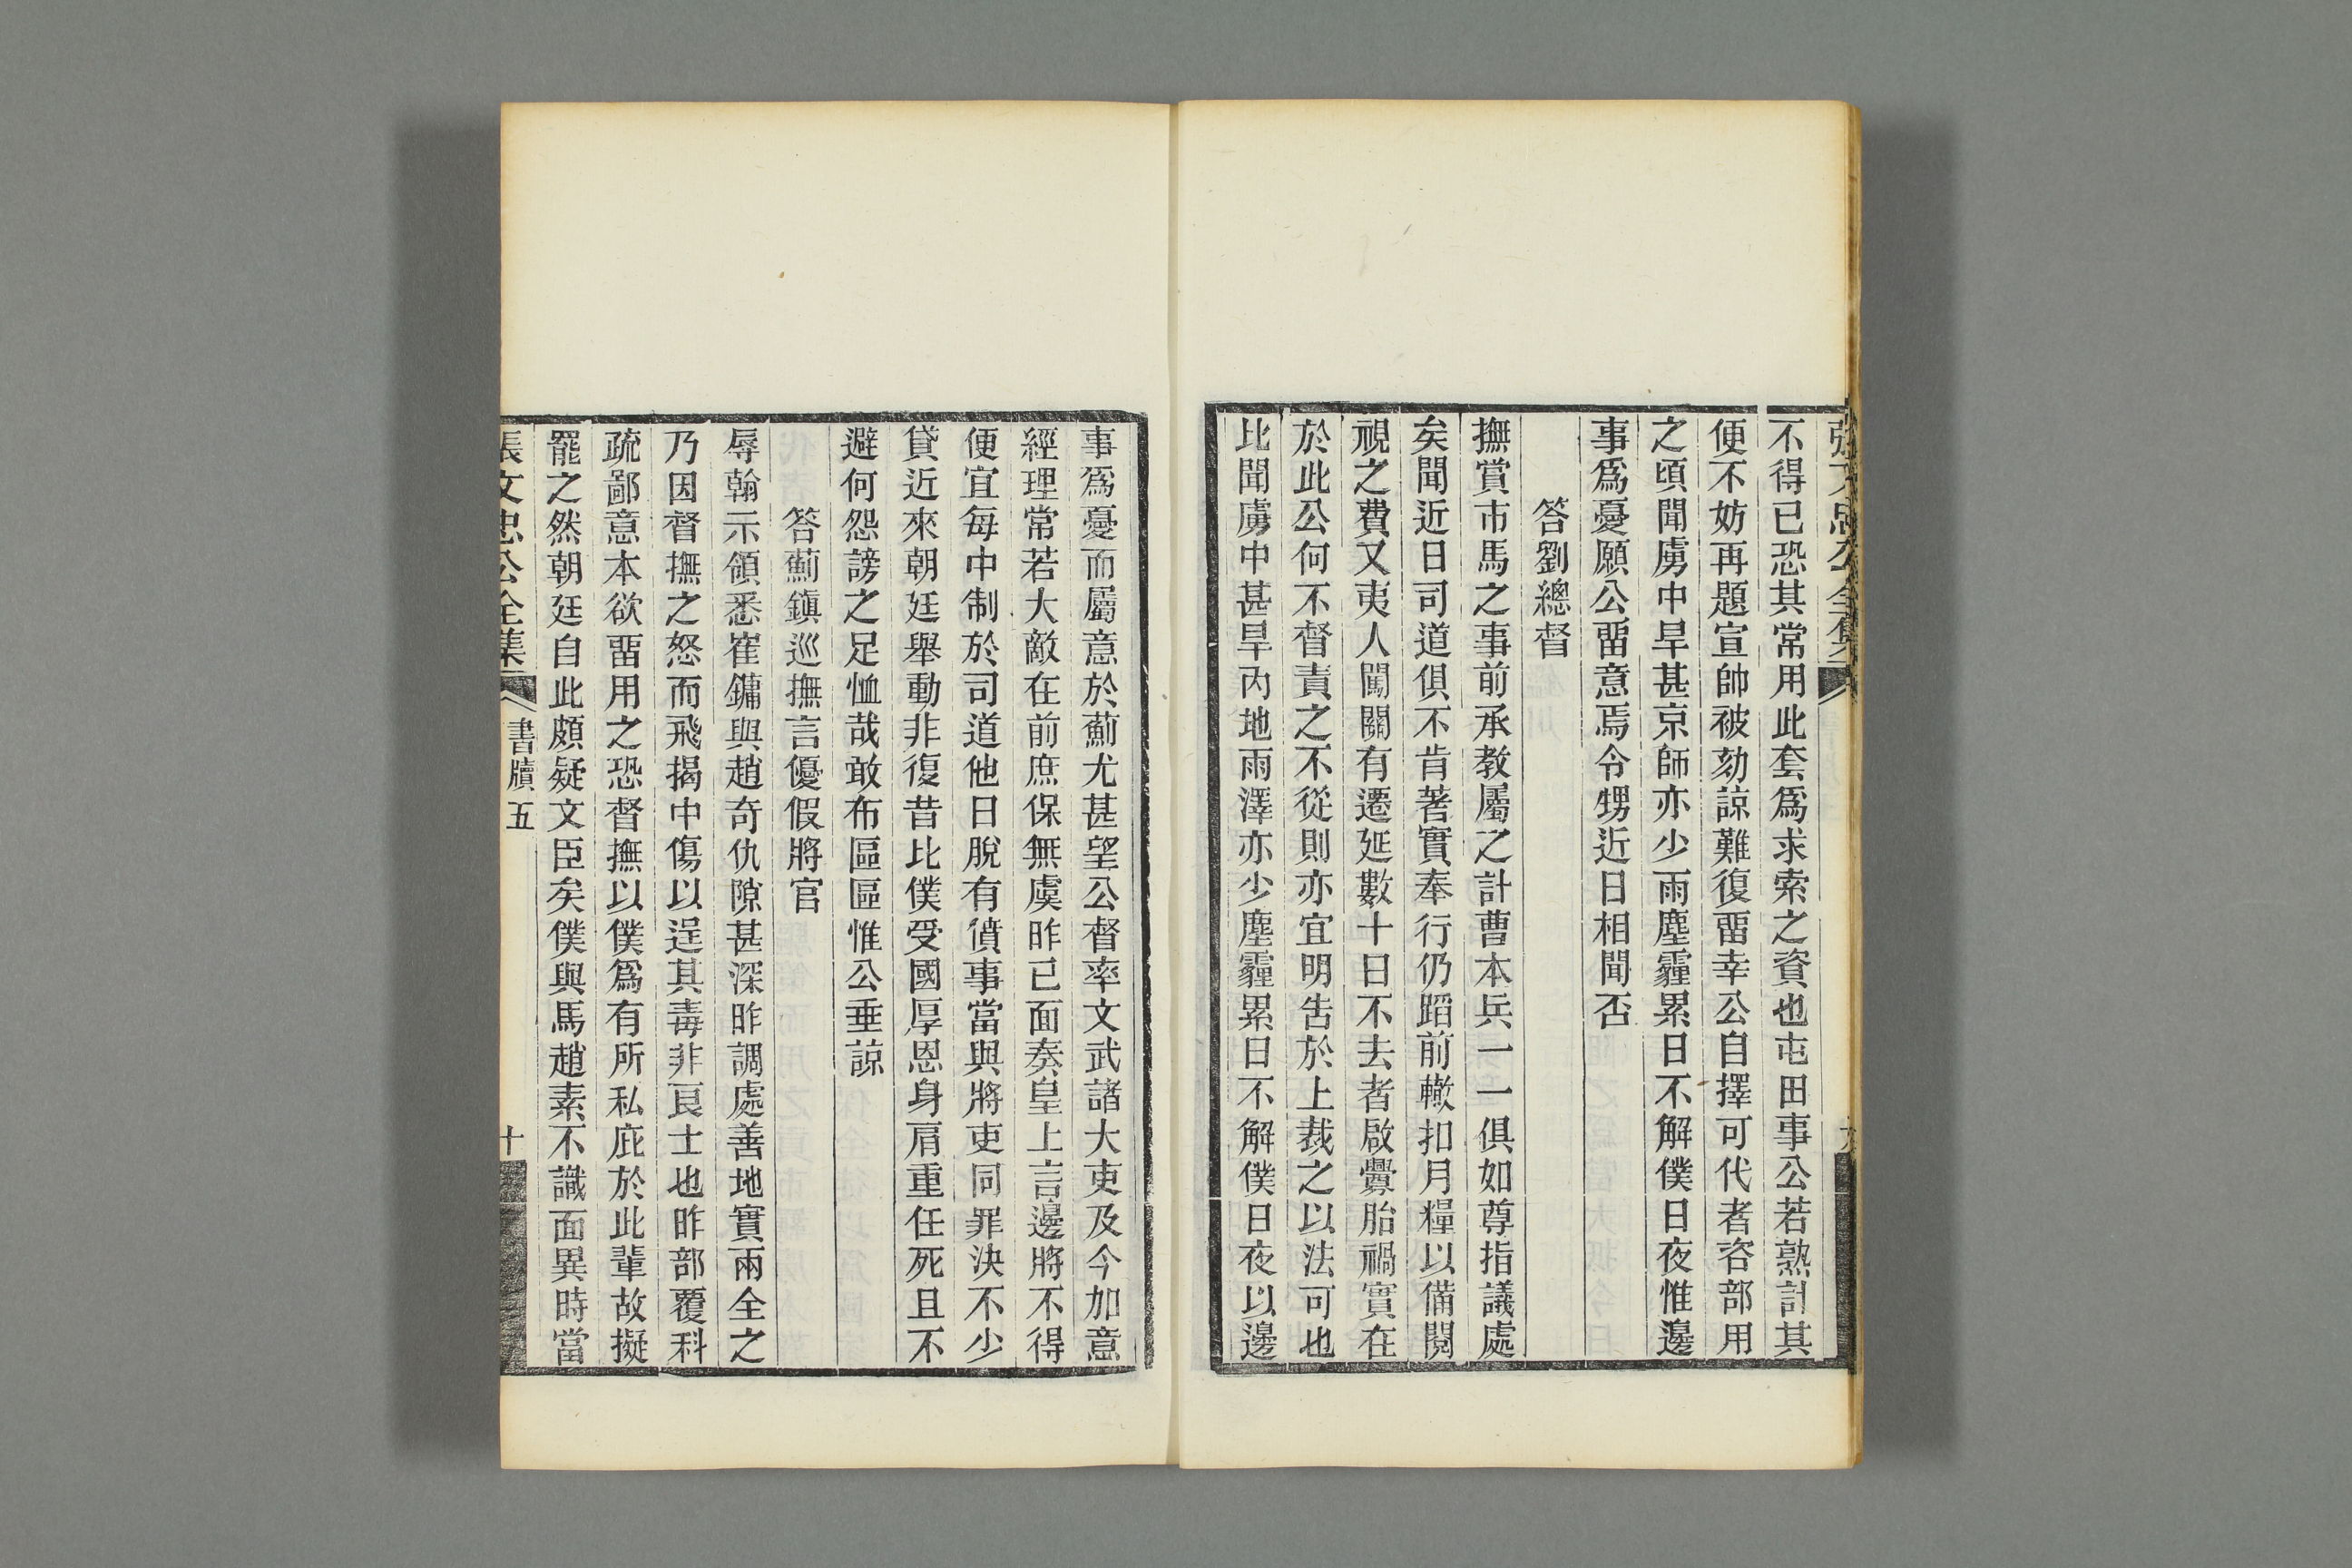 張文忠公全集
不得已恐其常用此套爲求索之資也屯田事公若熟計其
便不妨再題宣帥被劾諒難復畱幸公自擇可代者咨部用
之頃聞虜中旱甚京師亦少雨塵霾累日不解僕日夜惟邊
事爲憂願公畱意焉令甥近日相聞否
答劉總督
撫賞市馬之事前承教屬之計曹本兵一一俱如尊指議處
矣聞近日司道俱不肯著實奉行仍蹈前轍扣月糧以備閱
視之費又夷人闖關有遷延數十日不去者啟釁胎禍實在
於此公何不督責之不從則亦宜明告於上裁之以法可也
比聞虜中甚旱內地雨澤亦少塵霾累日不解僕日夜以邊
事爲憂而屬意於薊尤甚望公督率文武諸大吏及今加意
經理常若大敵在前庶保無虞昨已面奏皇上言邊將不得
便宜每中制於司道他日脫有僨事當與將吏同罪決不少
貸近來朝廷舉動非復昔比僕受國厚恩身肩重任死且不
避何怨謗之足恤哉敢布區區惟公垂諒
答薊鎮巡撫言優假將官
辱翰示領悉崔鏞與趙奇仇隙甚深昨調處善地實兩全之
乃因督撫之怒而飛揭中傷以逞其毒非良士也昨部覆科
疏鄙意本欲畱用之恐督撫以僕爲有所私庇於此輩故擬
罷之然朝廷自此頗疑文臣矣僕與馬趙素不識面異時當
張文忠公全集
書牘五
十